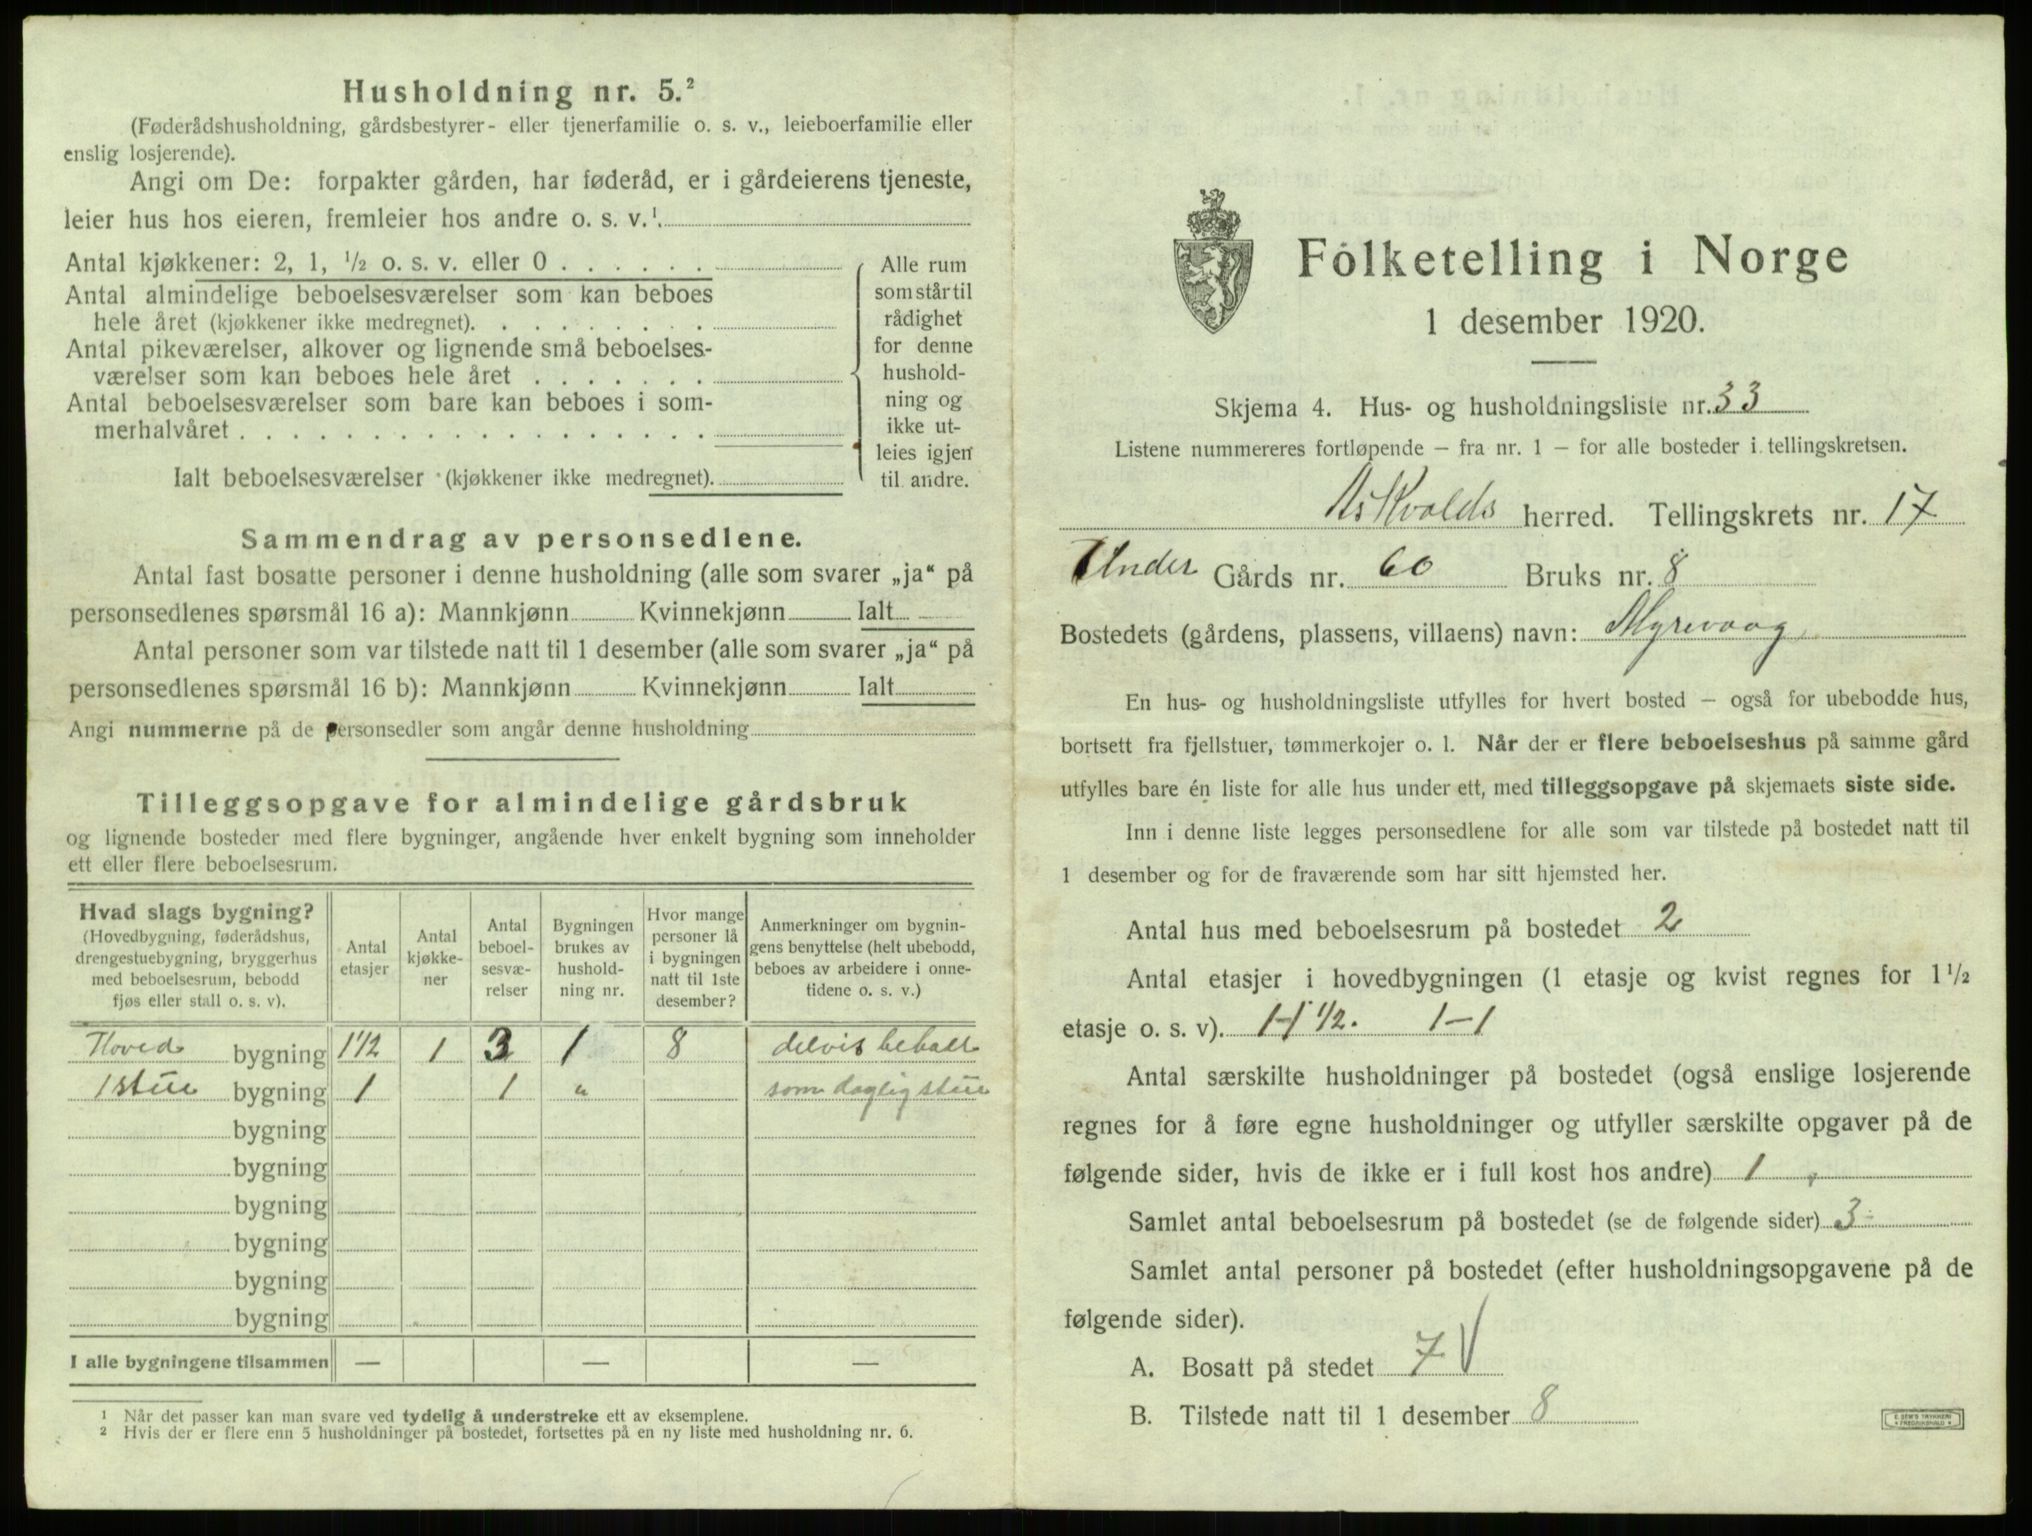 Husholdning nr. 5.²
(Føderådshusholdning, gårdsbestyrer- eller tjenerfamilie o. s. v., leieboerfamilie eller
enslig losjerende).
Angi om De: forpakter gården, har føderåd, er i gårdeierens tjeneste,
leier hus hos eieren, fremleier hos andre o. s. v.¹.
Antal kjøkkener: 2, 1, ½ o. s. v. eller 0 . . . . . .
Antal almindelige beboelsesværelser som kan beboes
hele året (kjøkkener ikke medregnet). . . . . . . . .
Antal pikeværelser, alkover og lignende små beboelses-
værelser som kan beboes hele året . . . . . . .
Antal beboelsesværelser som bare kan beboes i som-
merhalvåret . . . . . . . . . . . . . . . . . .
Ialt beboelsesværelser (kjøkkener ikke medregnet).
Alle rum
som står til
rådighet
for denne
hushold-
ning og
ikke ut-
leies igjen
til andre.
Sammendrag av personsedlene.
Antal fast bosatte personer i denne husholdning (alle som svarer „ja“ på
personsedlenes spørsmål 16 a): Mannkjønn Kvinnekjønn Ialt
Antal personer som var tilstede natt til 1 desember (alle som svarer „ja“ på
personsedlenes spørsmål 16 b): Mannkjønn Kvinnekjønn Ialt
Angi nummerne på de personsedler som angår denne husholdning
Tilleggsopgave for almindelige gårdsbruk
og lignende bosteder med flere bygninger, angående hver enkelt bygning som inneholder
ett eller flere beboelsesrum.
Hvad slags bygning?
(Hovedbygning, føderådshus,
drengestuebygning, bryggerhus
med beboelsesrum, bebodd
fjøs eller stall o. s. v).
Antal
etasjer
Antal
kjøkke-
ner
Antal
beboel-
sesvæ-
relser
Bygningen
brukes av
hushold-
ning nr.
Hvor mange
personer lå
i bygningen
natt til 1ste
desember?
Anmerkninger om bygnin-
gens benyttelse (helt ubebodd,
beboes av arbeidere i onne-
tidene o. s. v.)
Hoved bygning 1½ 1 3 1 8 delvis
1 stue bygning 1 1 " som daglig stue
bygning
bygning
bygning
bygning
bygning
bygning
I alle bygningene tilsammen — — —
¹ Når det passer kan man svare ved tydelig å understreke ett av eksemplene.
² Hvis der er flere enn 5 husholdninger på bostedet, fortsettes på en ny liste med husholdning nr. 6.
Folketelling i Norge
1 desember 1920.
Skjema 4. Hus- og husholdningsliste nr. 33
Listene nummereres fortløpende — fra nr. 1 — for alle bosteder i tellingskretsen.
Askvolds herred. Tellingskrets nr. 17
Under Gårds nr. 60 Bruks nr. 8
Bostedets (gårdens, plassens, villaens) navn: Myrevaag
En hus- og husholdningsliste utfylles for hvert bosted — også for ubebodde hus,
bortsett fra fjellstuer, tømmerkojer o. l. Når der er flere beboelseshus på samme gård
utfylles bare én liste for alle hus under ett, med tilleggsopgave på skjemaets siste side.
Inn i denne liste legges personsedlene for alle som var tilstede på bostedet natt til
1 desember og for de fraværende som har sitt hjemsted her.
Antal hus med beboelsesrum på bostedet 2
Antal etasjer i hovedbygningen (1 etasje og kvist regnes for 1½
etasje o. s. v). 1-1½. 1-1
Antal særskilte husholdninger på bostedet (også enslige losjerende
regnes for å føre egne husholdninger og utfyller særskilte opgaver på de
følgende sider, hvis de ikke er i full kost hos andre) 1
Samlet antal beboelsesrum på bostedet (se de følgende sider) 3
Samlet antal personer på bostedet (efter husholdningsopgavene på de
følgende sider).
A. Bosatt på stedet 7 V
B. Tilstede natt til 1 desember 8
E. SEM'S TRYKKERI
FREDRIKSHALD